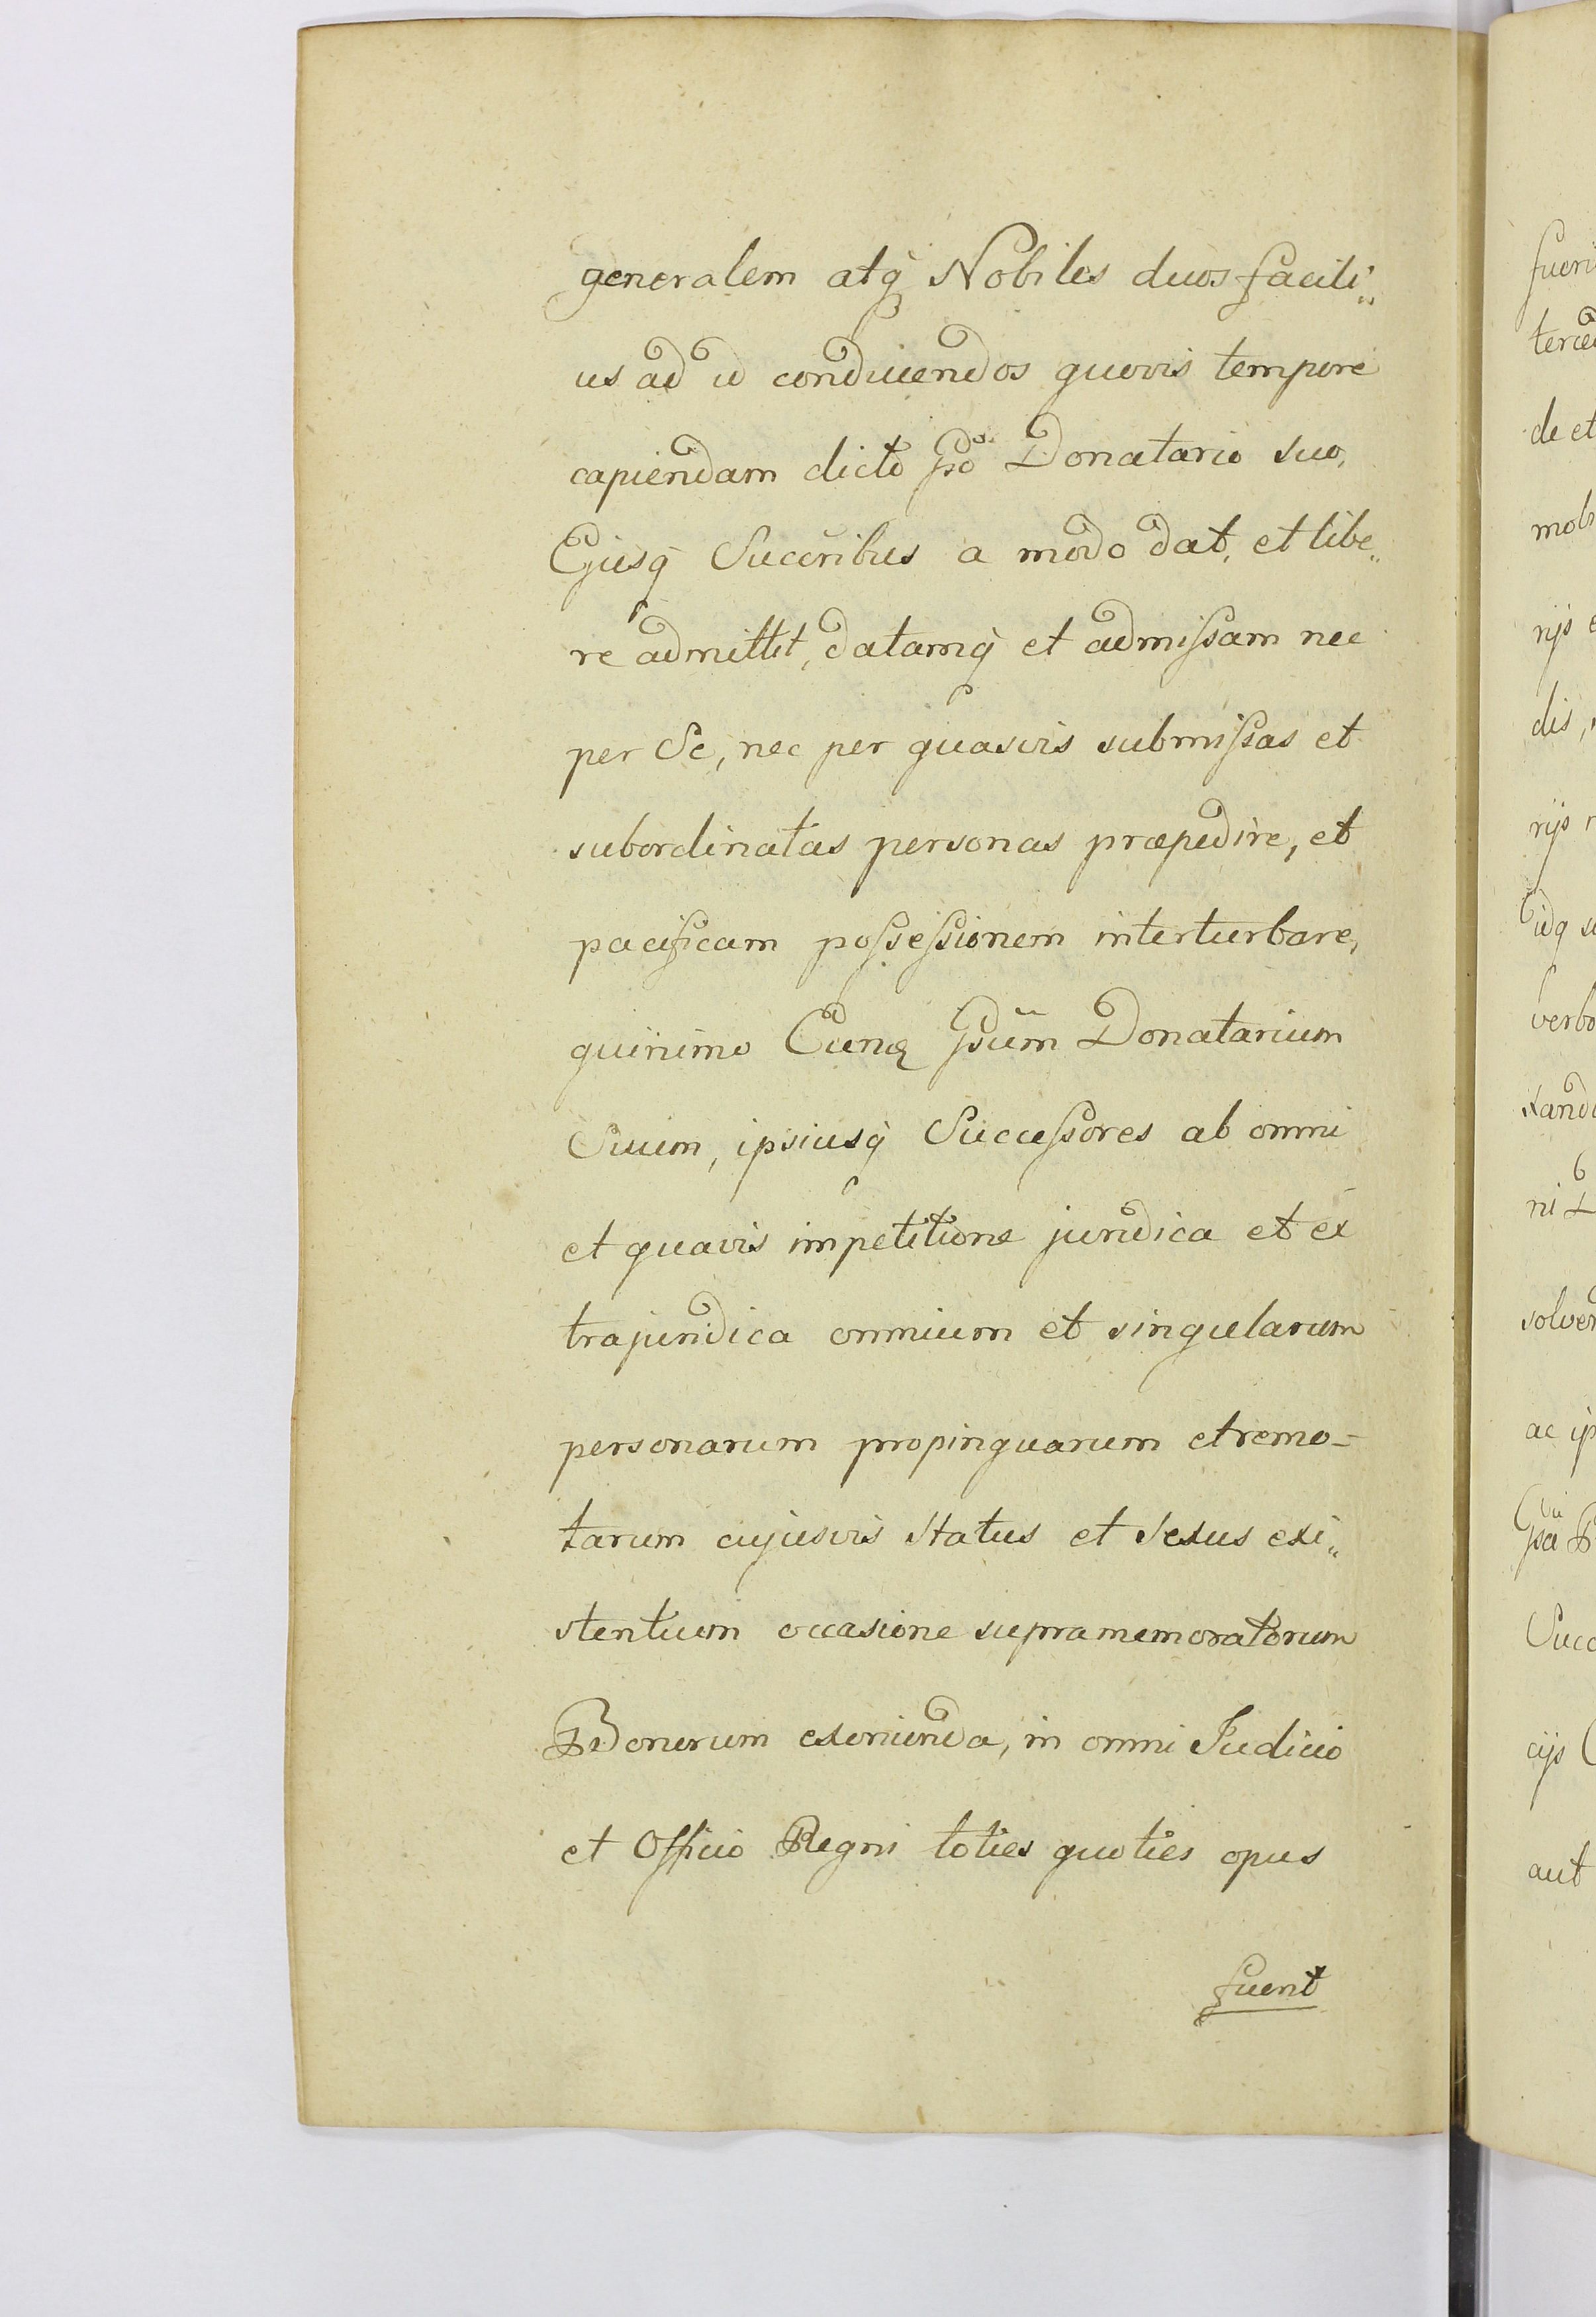 generalem atq̃ Nobiles duos facili„
us ad id conducendos quovis tempore
capiendam dicto Gso Donatario suo,
Ejusq̃ Succribus a modo dat, et libe„
re admittit, datamq̃ et admissam nec
per Se, nec per quasvis submissas et
subordinatas personas præpedire, et
pacificam possessionem interturbare,
quinimo Eunq̃ Gsum Donatarium
Suum, ipsiusq̃ Successores ab omni
et quavis impetitione juridica et ex
trajuridica omnium et singularum
personarum propinquarum et remo-
tarum cujusvis Status et Sexus exi„
stentium occasione supramemoratorum
Bonorum exorienda, in omni Judicio
et Officio Regni toties quoties opus
fuerit
de et
aut